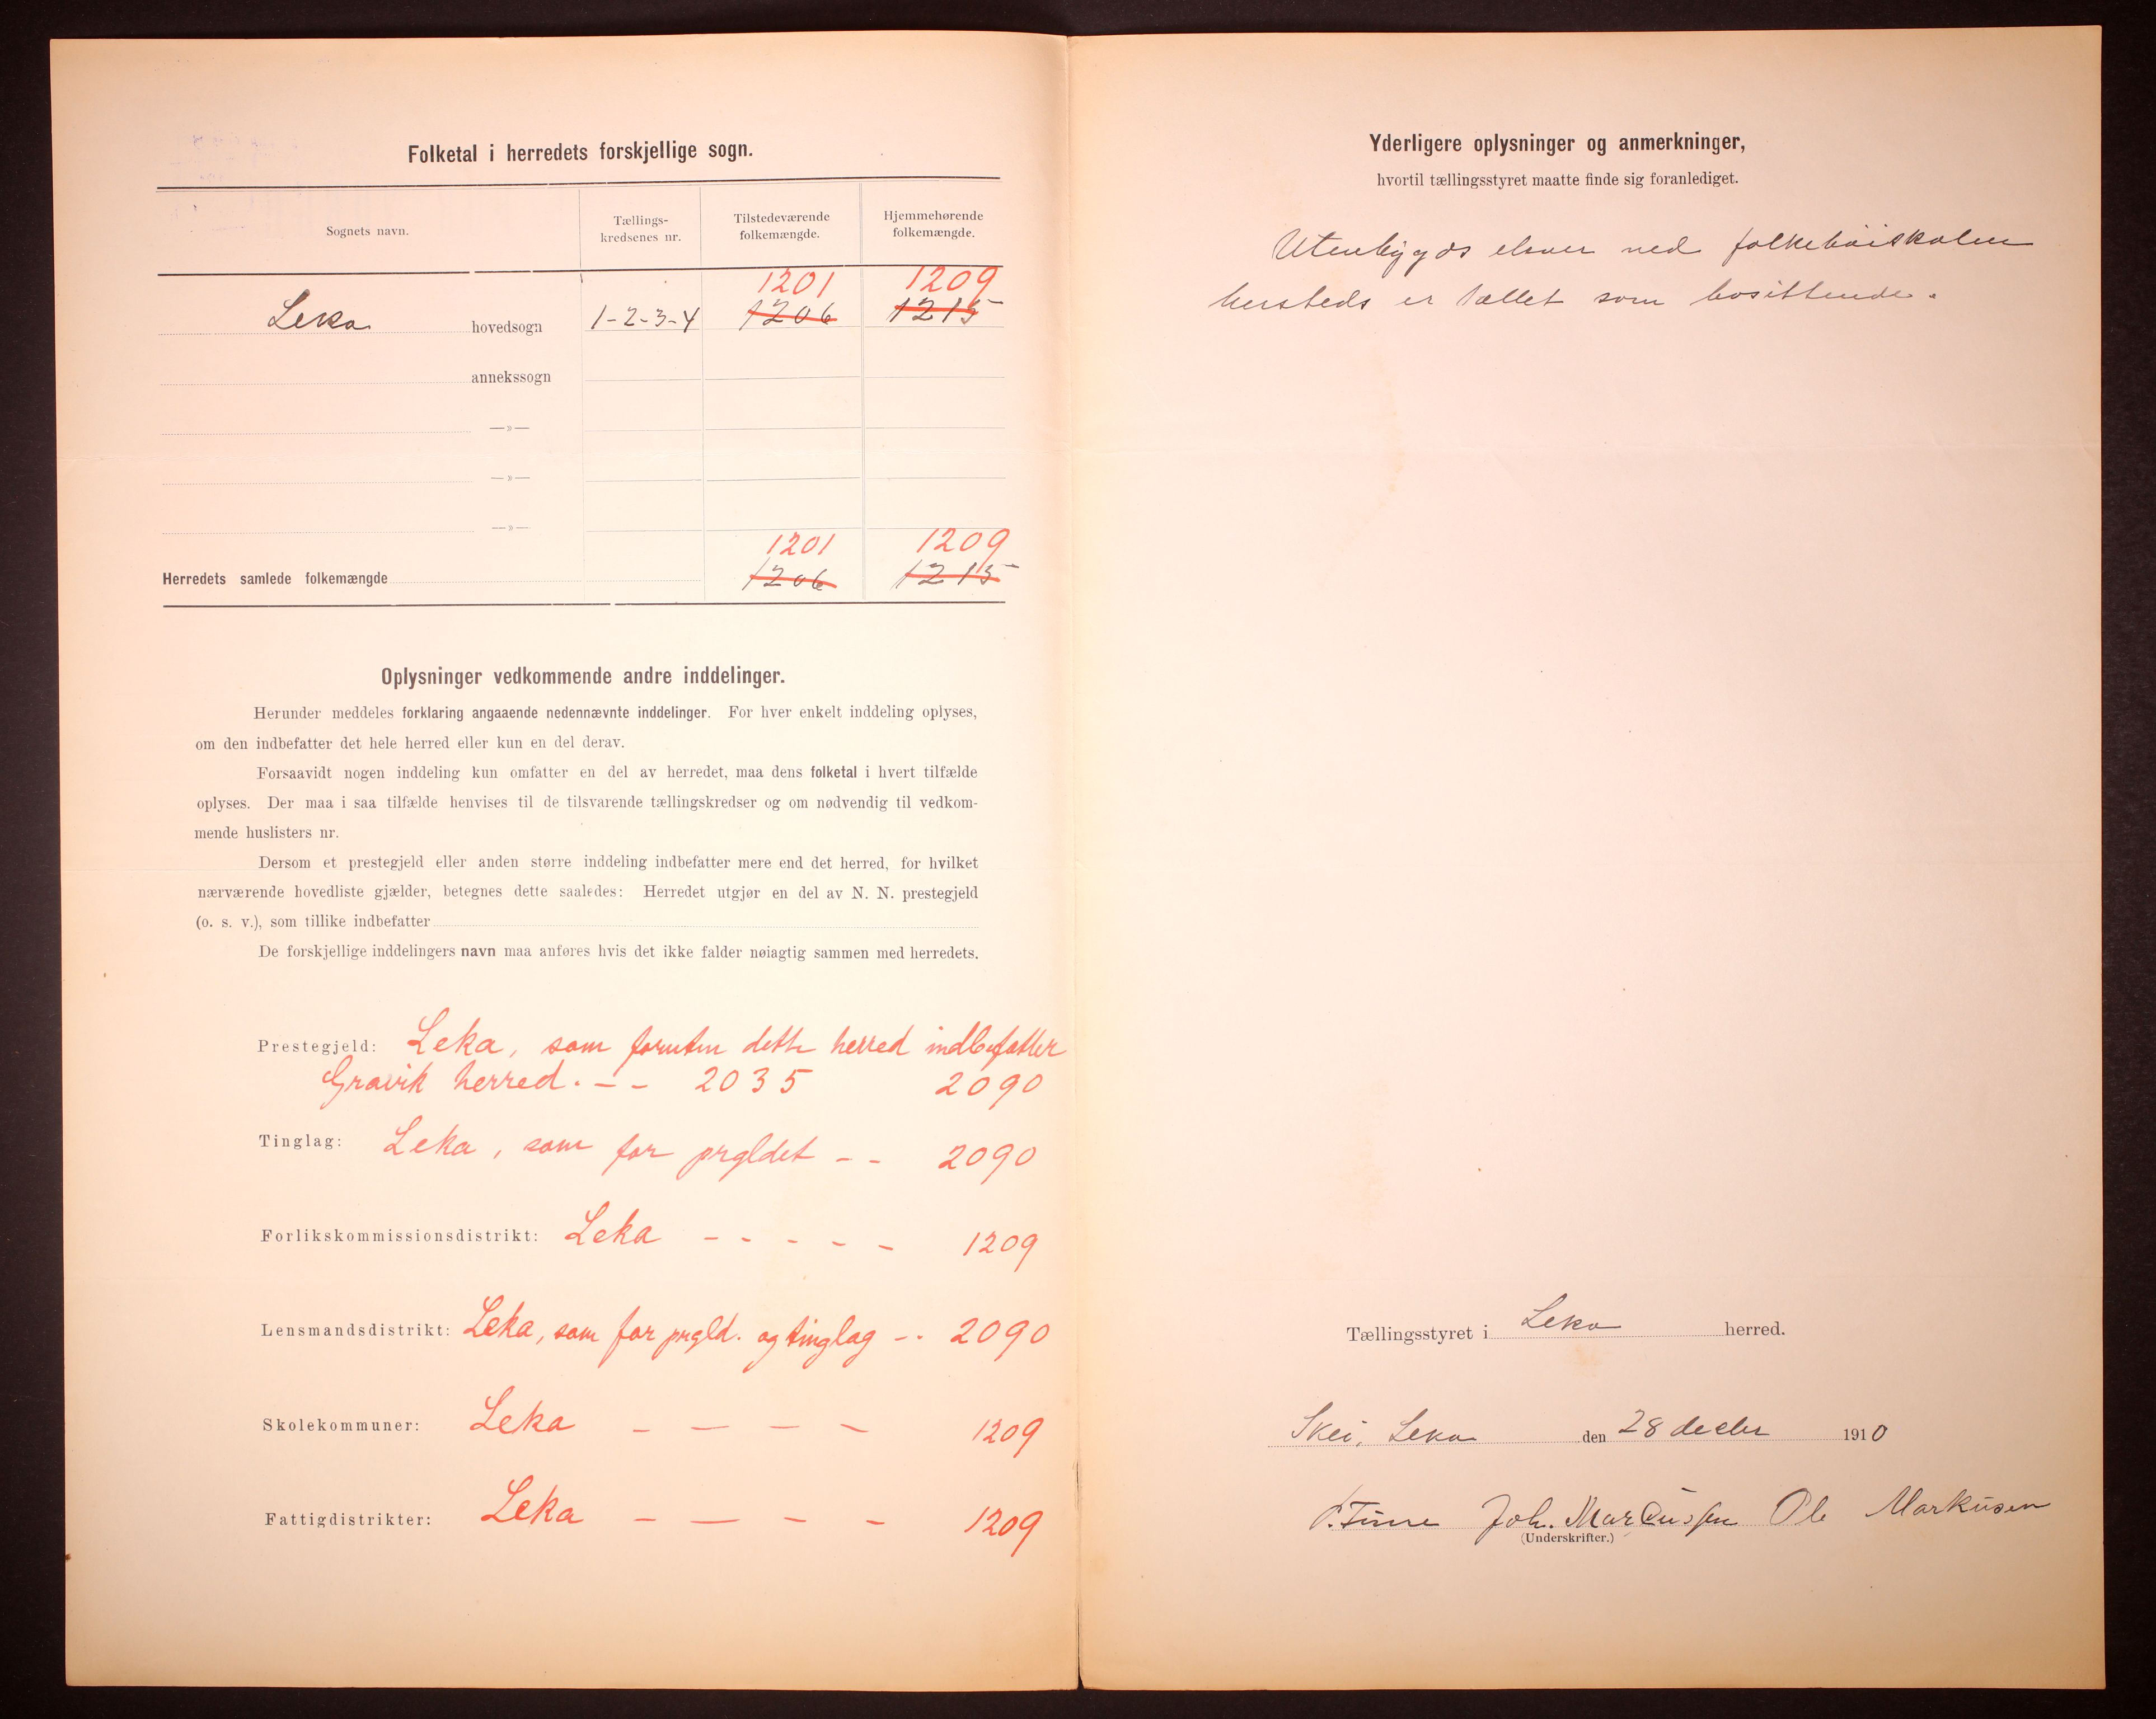 Folketal i herredets forskjellige sogn.
Sognets navn.
Tællings-
kredsenes nr.
Tilstedeværende
folkemængde.
Hjemmehørende
folkemængde.
1201 1209
Leka hovedsogn 1-2-3-4 1206 1215
annekssogn
—»—
—»—
—»—
1201 1209
Herredets samlede folkemængde 1206 1215
Oplysninger vedkommende andre inddelinger.
Herunder meddeles forklaring angaaende nedennævnte inddelinger. For hver enkelt inddeling oplyses,
om den indbefatter det hele herred eller kun en del derav.
Forsaavidt nogen inddeling kun omfatter en del av herredet, maa dens folketal i hvert tilfælde
oplyses. Der maa i saa tilfælde henvises til de tilsvarende tællingskredser og om nødvendig til vedkom-
mende huslisters nr.
Dersom et prestegjeld eller anden større inddeling indbefatter mere end det herred, for hvilket
nærværende hovedliste gjælder, betegnes dette saaledes: Herredet utgjør en del av N. N. prestegjeld
(o. s. v.), som tillike indbefatter
De forskjellige inddelingers navn maa anføres hvis det ikke falder nøiagtig sammen med herredets.
Prestegjeld: Leka, som foruten dette herred indbefatter
Gravik herred. - - 2035 2090
Tinglag: Leka, som for prgldet - - 2090
Forlikskommissionsdistrikt: Leka - - - - - 1209
Lensmandsdistrikt: Leka, som for prgld. og tinglag - - 2090
Skolekommuner: Leka - - - - 1209
Fattigdistrikter: Leka - - - - 1209
Yderligere oplysninger og anmerkninger,
hvortil tællingsstyret maatte finde sig foranlediget.
Utenbygds elever ved folkehöiskolen
hersteds er tællet som bosittende.
Tællingsstyret i Leka herred.
Skei, Leka den 28 decbr 1910
Joh. Marcussen Ole Markusen
(Underskrifter.)